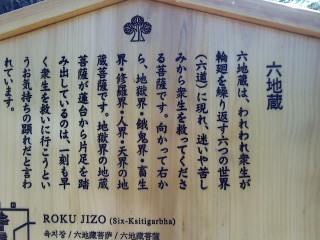 六地蔵
六地蔵は、われわれ衆生が
輪廻を繰り返す六つの世界
(六道)に現れ、迷いや苦し
みから衆生を救ってくださ
る菩薩です。向かって右か
ら、地獄界・餓鬼界・畜生
界・修羅界・人界・天界の地
蔵菩薩です。地獄界の地蔵
菩薩が蓮台から片足を踏
み出しているのは、一刻も早
く衆生を救いに行こうとい
うお気持ちの顕れだと言わ
れています。
ROKU JIZO (Six-Ksitigarbha)
육지장 / 六地藏菩萨 / 六地藏菩薩